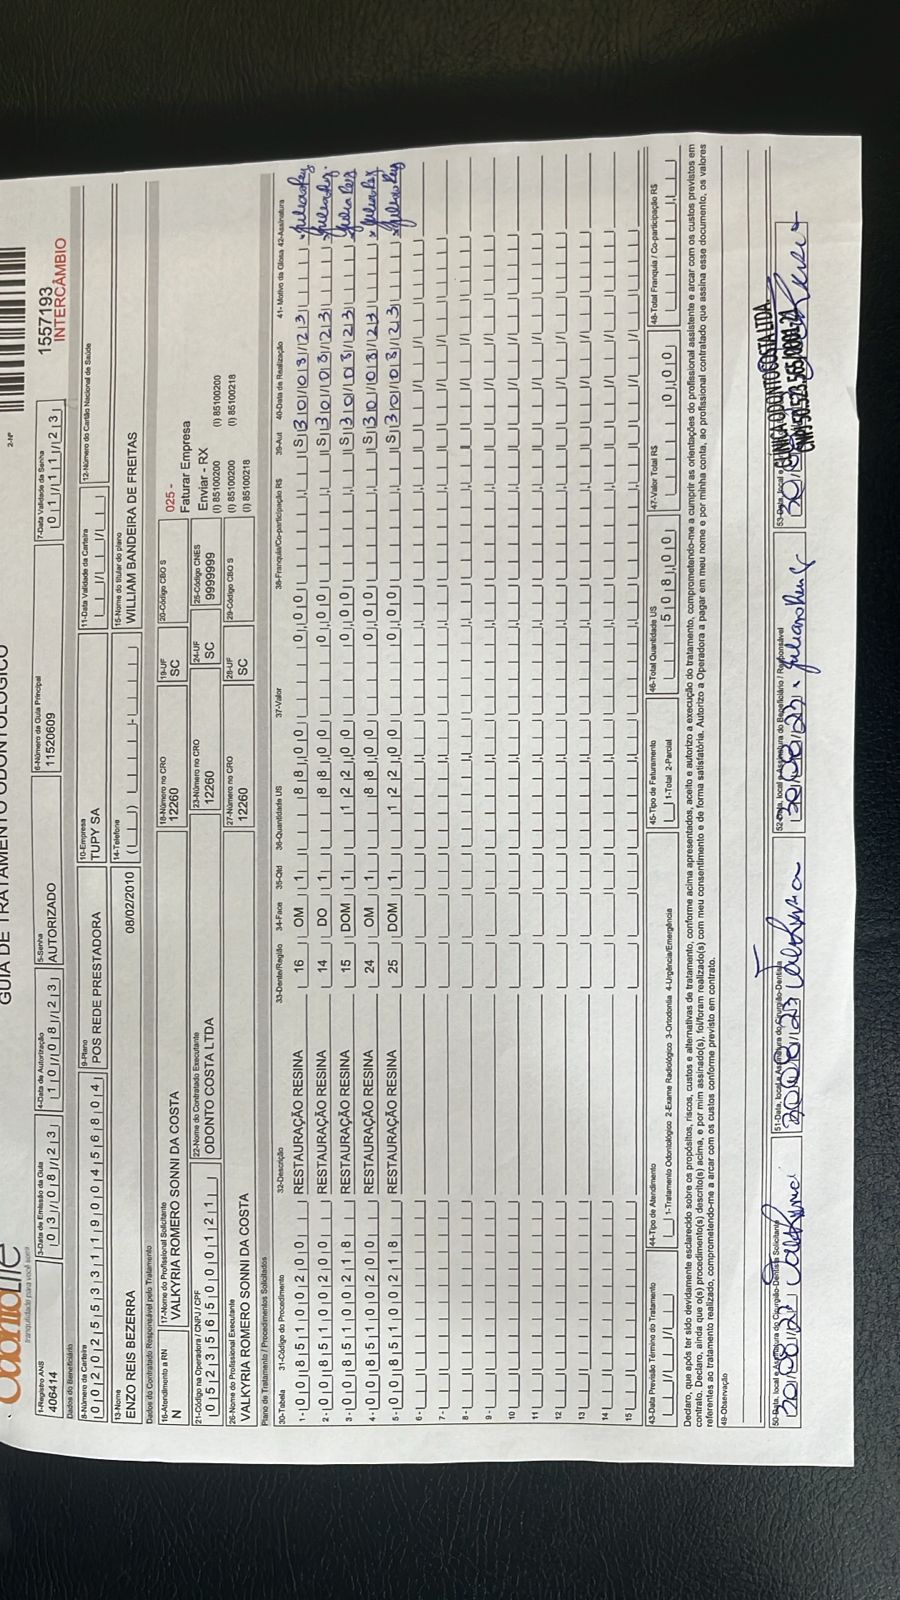 GUIA DE TRATAMENTO ODONTOLÓGICO
2-Nº
OdontoLife
tranquilidade para você sorrir
1557193
INTERCÂMBIO
1-Registro ANS
406414
3-Data de Emissão da Guia
03/08/23
4-Data de Autorização
10/08/23
5-Senha
AUTORIZADO
6-Número da Guia Principal
11520609
7-Data Validade da Senha
01/11/23
Dados do Beneficiário
8-Número da Carteira
00202553311900456804
9-Plano
POS REDE PRESTADORA
10-Empresa
TUPY SA
11-Data Validade da Carteira
12-Número do Cartão Nacional de Saúde
13-Nome
ENZO REIS BEZERRA
08/02/2010
14-Telefone
15-Nome do titular do plano
WILLIAM BANDEIRA DE FREITAS
Dados do Contratado Responsável pelo Tratamento
16-Atendimento a RN
N
17-Nome do Profissional Solicitante
VALKYRIA ROMERO SONNI DA COSTA
18-Número no CRO
12260
19-UF
SC
20-Código CBO S
025 -
Faturar Empresa
Enviar - RX
(I) 85100200 (I) 85100200
(I) 85100200 (I) 85100218
(I) 85100218
21-Código na Operadora / CNPJ / CPF
22-Nome do Contratado Executante
ODONTO COSTA LTDA
23-Número no CRO
12260
24-UF
SC
25-Código CNES
9999999
26-Nome do Profissional Executante
VALKYRIA ROMERO SONNI DA COSTA
27-Número no CRO
12260
28-UF
SC
29-Código CBO S
Plano de Tratamento / Procedimentos Solicitados
30-Tabela 31-Código do Procedimento 32-Descrição 33-Dente/Região 34-Face 35-Qtd 36-Quantidade US 37-Valor 38-Franquia/Co-participação R$ 39-Aut 40-Data de Realização 41- Motivo da Glosa 42-Assinatura
1- 00 85100200 RESTAURAÇÃO RESINA 16 OM 1 88,00 0,00 S 30/08/23
2- 00 85100200 RESTAURAÇÃO RESINA 14 DO 1 88,00 0,00 S 30/08/23
3- 00 85100218 RESTAURAÇÃO RESINA 15 DOM 1 122,00 0,00 S 30/08/23
4- 00 85100200 RESTAURAÇÃO RESINA 24 OM 1 88,00 0,00 S 30/08/23
5- 00 85100218 RESTAURAÇÃO RESINA 25 DOM 1 122,00 0,00 S 30/08/23
6-
7-
8-
9-
10
11
12
13
14
15
43-Data Previsão Término do Tratamento
44-Tipo de Atendimento
1-Tratamento Odontológico 2-Exame Radiológico 3-Ortodontia 4-Urgência/Emergência
45-Tipo de Faturamento
1-Total 2-Parcial
46-Total Quantidade US
508,00
47-Valor Total R$
0,00
48-Total Franquia / Co-participação R$
Declaro, que após ter sido devidamente esclarecido sobre os propósitos, riscos, custos e alternativas de tratamento, conforme acima apresentados, aceito e autorizo a execução do tratamento, comprometendo-me a cumprir as orientações do profissional assistente e arcar com os custos previstos em
contrato. Declaro, ainda que o(s) procedimento(s) descrito(s) acima, e por mim assinado(s), foi/foram realizado(s) com meu consentimento e de forma satisfatória. Autorizo a Operadora a pagar em meu nome e por minha conta, ao profissional contratado que assina esse documento, os valores
referentes ao tratamento realizado, comprometendo-me a arcar com os custos conforme previsto em contrato.
49-Observação
50-Data, local e Assinatura do Cirurgião-Dentista Solicitante
30/08/23
51-Data, local e Assinatura do Cirurgião-Dentista
30/08/23
52-Data, local e Assinatura do Beneficiário / Responsável
30/08/23
53-Data, local e
CLINICA ODONTO COSTA LTDA